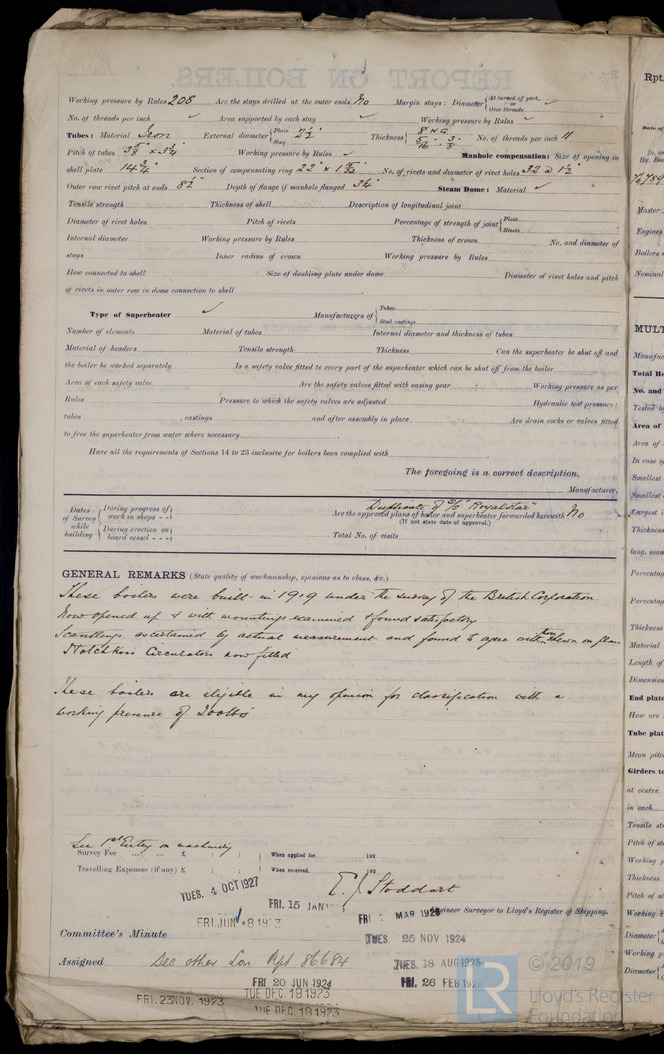 REPORT ON BOILERS.
Working pressure by Rules 208 Are the stays drilled at the outer ends No Margin stays: Diameter { At turned off part, or Over threads
No. of threads per inch ✓ Area supported by each stay ✓ Working pressure by Rules ✓
Tubes: Material Iron External diameter { Plain 2½" Stay Thickness { 8 W.G. 5/16 · 3/8 No. of threads per inch 11
Pitch of tubes 3⅝ x 3¾ Working pressure by Rules ✓ Manhole compensation: Size of opening in
shell plate Section of compensating ring No. of rivets and diameter of rivet holes
Outer row rivet pitch at ends 8½" Depth of flange if manhole flanged Steam Dome: Material ✓
Tensile strength Thickness of shell Description of longitudinal joint
Diameter of rivet holes Pitch of rivets Percentage of strength of joint { Plate Rivets
Internal diameter Working pressure by Rules Thickness of crown No. and diameter of
stays Inner radius of crown Working pressure by Rules
How connected to shell Size of doubling plate under dome Diameter of rivet holes and pitch
of rivets in outer row in dome connection to shell
Type of Superheater ✓ Manufacturers of { Tubes Steel castings
Number of elements Material of tubes Internal diameter and thickness of tubes
Material of headers Tensile strength Thickness Can the superheater be shut off and
the boiler be worked separately Is a safety valve fitted to every part of the superheater which can be shut off from the boiler
Area of each safety valve Are the safety valves fitted with easing gear Working pressure as per
Rules Pressure to which the safety valves are adjusted Hydraulic test pressure:
tubes , castings and after assembly in place Are drain cocks or valves fitted
to free the superheater from water where necessary
Have all the requirements of Sections 14 to 23 inclusive for boilers been complied with
The foregoing is a correct description,
Manufacturer.
Dates of Survey while building { During progress of work in shops - - } { During erection on board vessel - - - }
Duplicate of S/S "Royalstar"
Are the approved plans of boiler and superheater forwarded herewith No
(If not state date of approval.)
Total No. of visits
GENERAL REMARKS (State quality of workmanship, opinions as to class, &c.)
These boilers were built in 1919 under the survey of the British Corporation
Now opened up & with mountings examined & found satisfactory
Scantlings ascertained by actual measurement and found to agree with those shewn on plan
Hotchkiss Circulators now fitted
These boilers are eligible in my opinion for classification with a
working pressure of 200lbs
See 1st Entry on machinery
Survey Fee ... ... £ : : When applied for, 192
Travelling Expenses (if any) £ : : When received, 192
TUES. 4 OCT 1927
Stoddart
FRI. 15 JAN
Engineer Surveyor to Lloyd's Register of Shipping.
Committee's Minute
TUES. 25 NOV 1924
Assigned See other Lon Rpt 86684
TUES. 18 AUG 1925
FRI. 20 JUN 1924
FRI. 26 FEB
TUE DEC. 18 1923
FRI. 23 NOV. 1923
TUE DEC. 18 1923
© 2019
Lloyd's Register
Foundation
LR
Rpt.
Date of
Master
Engines
Boilers
Nominal
MULT
Manufac
Total He
No. and
Tested b
Area of
Area of
In case o
Smallest
Smallest
Largest i
Thickness
long. seam
Percentag
Percentag
Thickness
Material
Length of
Dimension
End plate
How are
Tube plat
Mean pitc
Girders to
at centre
in each
Tensile str
Pitch of st
Working p
Thickness
Pitch of st
Working p
Diameter
Working p
Diameter